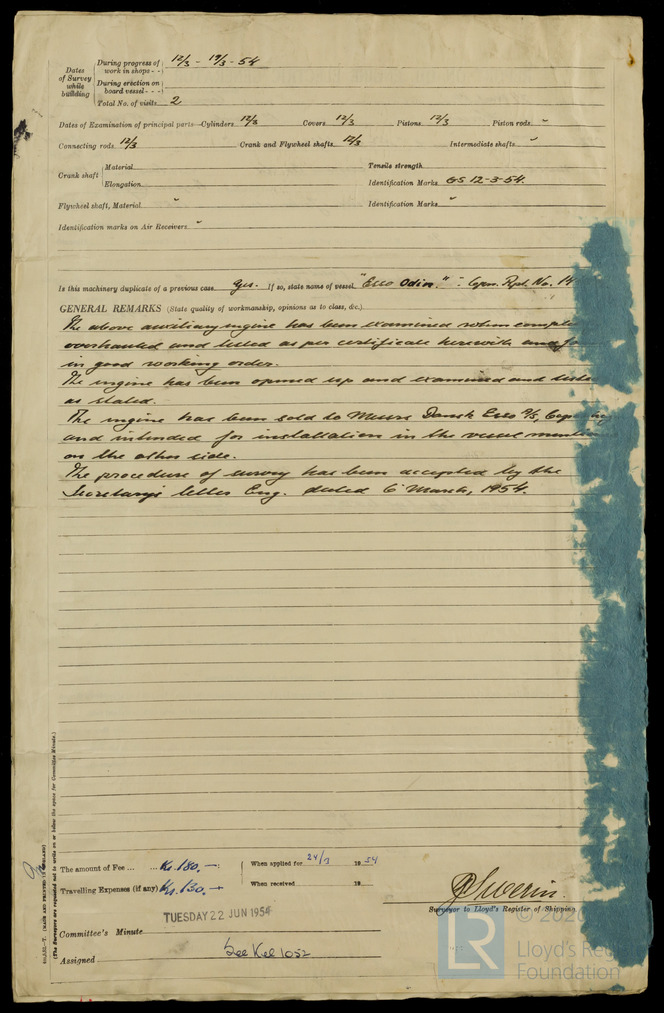 Dates of Survey while building
During progress of work in shops - - 12/3 - 19/3 - 54
During erection on board vessel - - -
Total No. of visits 2
Dates of Examination of principal parts—Cylinders 12/3 Covers 12/3 Pistons 12/3 Piston rods
Connecting rods 12/3 Crank and Flywheel shafts 12/3 Intermediate shafts
Crank shaft Material Tensile strength
Elongation Identification Marks GS 12-3-54.
Flywheel shaft, Material Identification Marks
Identification marks on Air Receivers
Is this machinery duplicate of a previous case yes. If so, state name of vessel "Esso Odin." - Copen. Rpt. No. 14
GENERAL REMARKS (State quality of workmanship, opinions as to class, &c.)
The above auxiliary engine has been examined when
overhauled and tested as per certificate herewith and
in good working order.
The engine has been opened up and examined and
as stated.
The engine has been sold to Messrs Dansk Esso A/S,
and intended for installation in the vessel
on the other side.
The procedure of survey has been accepted by the
Secretary's letter Eng. dated 6 March, 1954.
(The Surveyors are requested not to write on or below the space for Committee Minute.)
The amount of Fee ... ... Kr. 180.— When applied for 24/3 19 54
Travelling Expenses (if any) Kr. 130.— When received 19
Surveyor to Lloyd's Register of Shipping.
TUESDAY 22 JUN 1954
Committee's Minute
Assigned See Kel 1052
© 2020
LR Lloyd's Re
Foundation